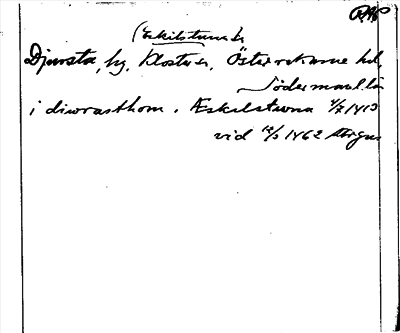 RAP
(Eskilstuna s
Djursta, by, Klosters, Österrekarne hd,
Södermanl. län
i diwrasthom. Æskilstuna 4/7 1413
vid 12/5 1462